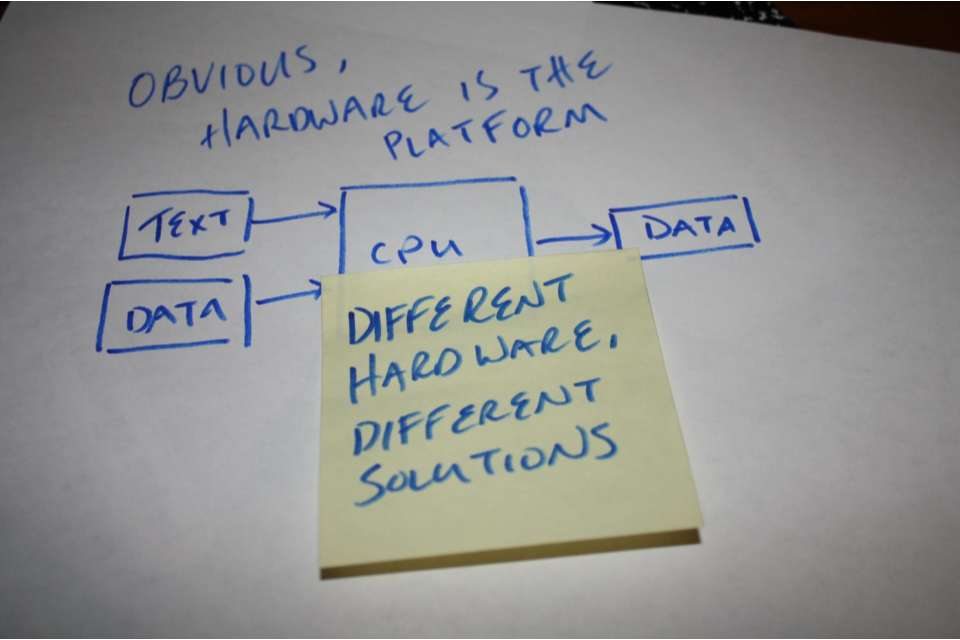 OBVIOUS,
HARDWARE IS THE
PLATFORM
TEXT
CPU
DATA
DATA
DIFFERENT
HARDWARE,
DIFFERENT
SOLUTIONS